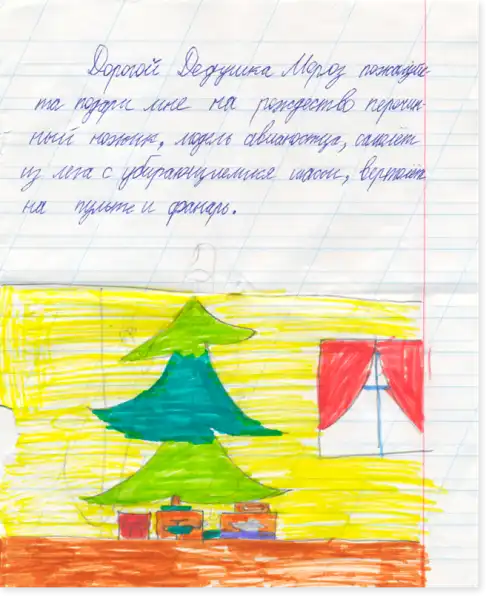 Дорогой Дедушка Мороз пожалуйс
та подари мне на рождество перочин
ный ножик, модель авианосца, самолёт
из лега с убирающиемися шасси, вертолёт
на пульте и фанарь.